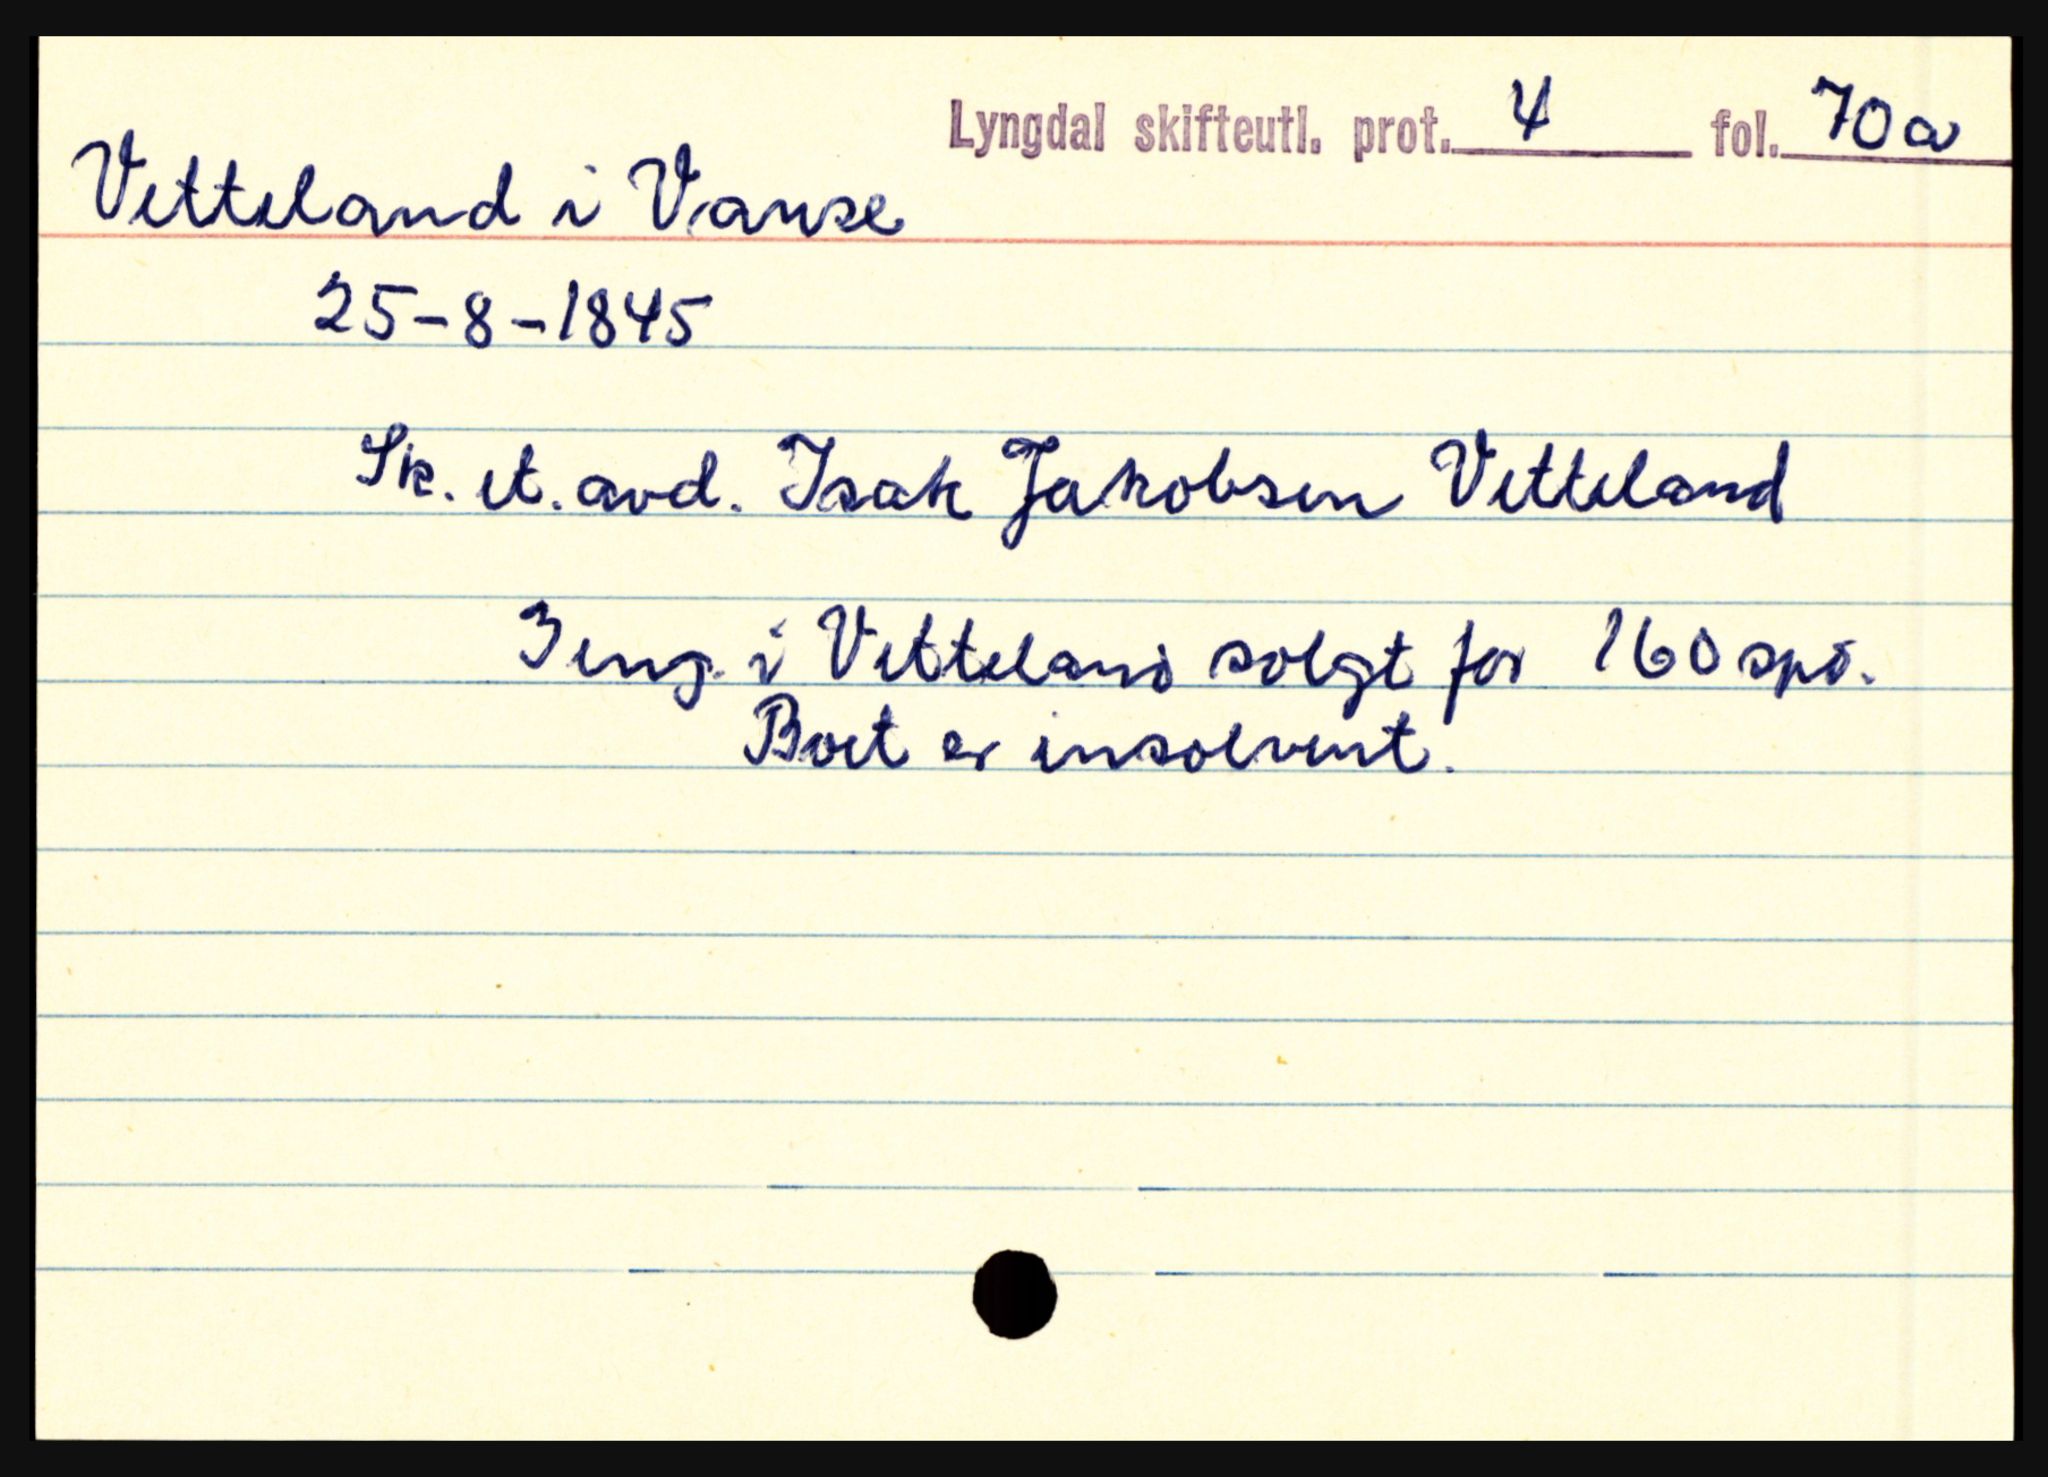 Lyngdal skifteutl. prot. 4 fol. 70a
Vetteland i Vanse
25-8-1845
Sk. et. avd. Isak Jakobsen Vetteland
3 eng. i Vetteland solgt for 160 spd.
Boet er insolvent.